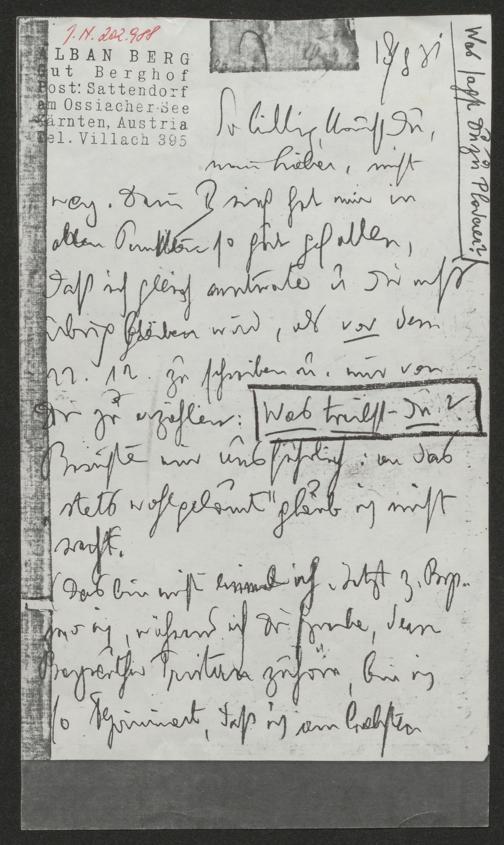 J.N. 202.988
ALBAN BERG
Gut Berghof
Post: Sattendorf
am Ossiacher See
Kärnten, Austria
Tel. Villach 395
18/8 31
So billig kommst Du,
mein Lieber, nicht
weg. Dein sich hat mir in
allen Punkten so gut gefallen,
daß ich gleich antworte u. Dir nichts
übrig bleiben wird, als vor dem
22. 12. zu schreiben u. mir von
Dir zu erzählen: Was treibst Du?
mir ausführlich: an das
stets wohlgelaunt" glaub ich nicht
recht.
Das bin nicht einmal ich. Jetzt z. Bsp.
wo ich, während ich Dir schreibe, dem
Bayreuther Tristan zuhöre, bin ich
so deprimiert, daß ich am liebsten
Was sagst Du zu